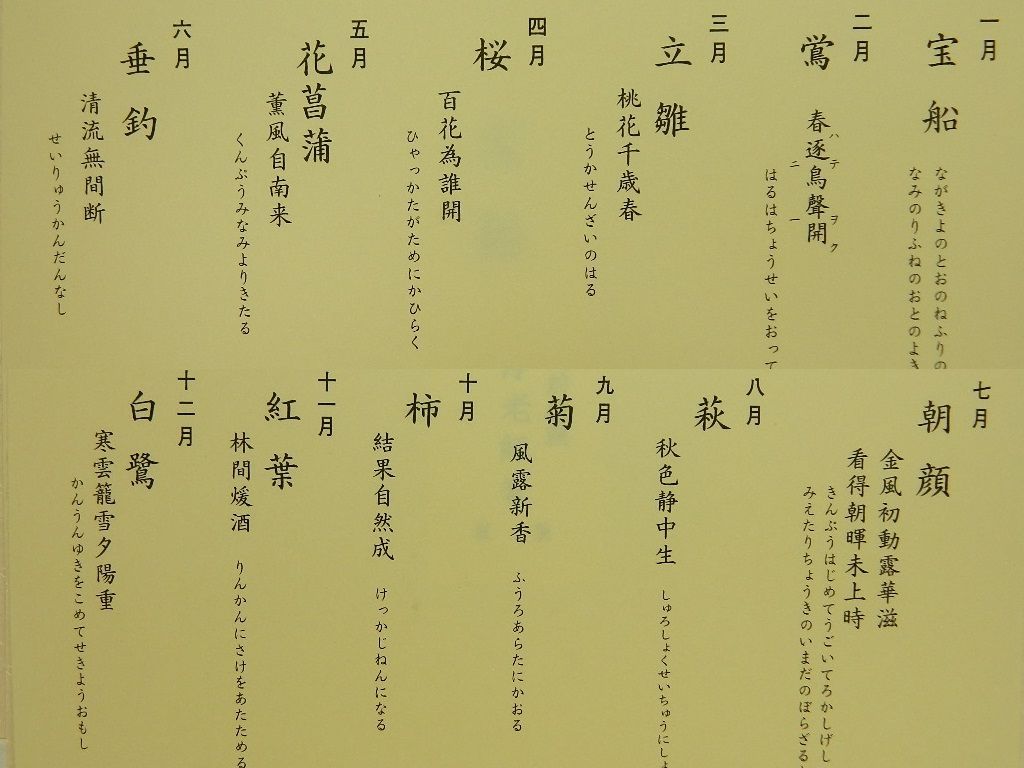 一月
宝船
ながきよのとおのねふりの
なみのりふねのおとのよき
二月
鴬
春逐鳥聲開
ハ テ ヲ ク
ニ 一
はるはちょうせいをおって
三月
立雛
桃花千歳春
とうかせんざいのはる
四月
桜
百花為誰開
ひゃっかたがためにかひらく
五月
花菖蒲
薫風自南来
くんぷうみなみよりきたる
六月
垂釣
清流無間断
せいりゅうかんだんなし
七月
朝顔
金風初動露華滋
看得朝暉未上時
きんぷうはじめてうごいてろかしげし
みえたりちょうきのいまだのぼらざる
八月
萩
秋色静中生
しゅろしょくせいちゅうにしょ
九月
菊
風露新香
ふうろあらたにかおる
十月
柿
結果自然成
けっかじねんになる
十一月
紅葉
林間煖酒
りんかんにさけをあたためる
十二月
白鷺
寒雲籠雪夕陽重
かんうんゆきをこめてせきようおもし